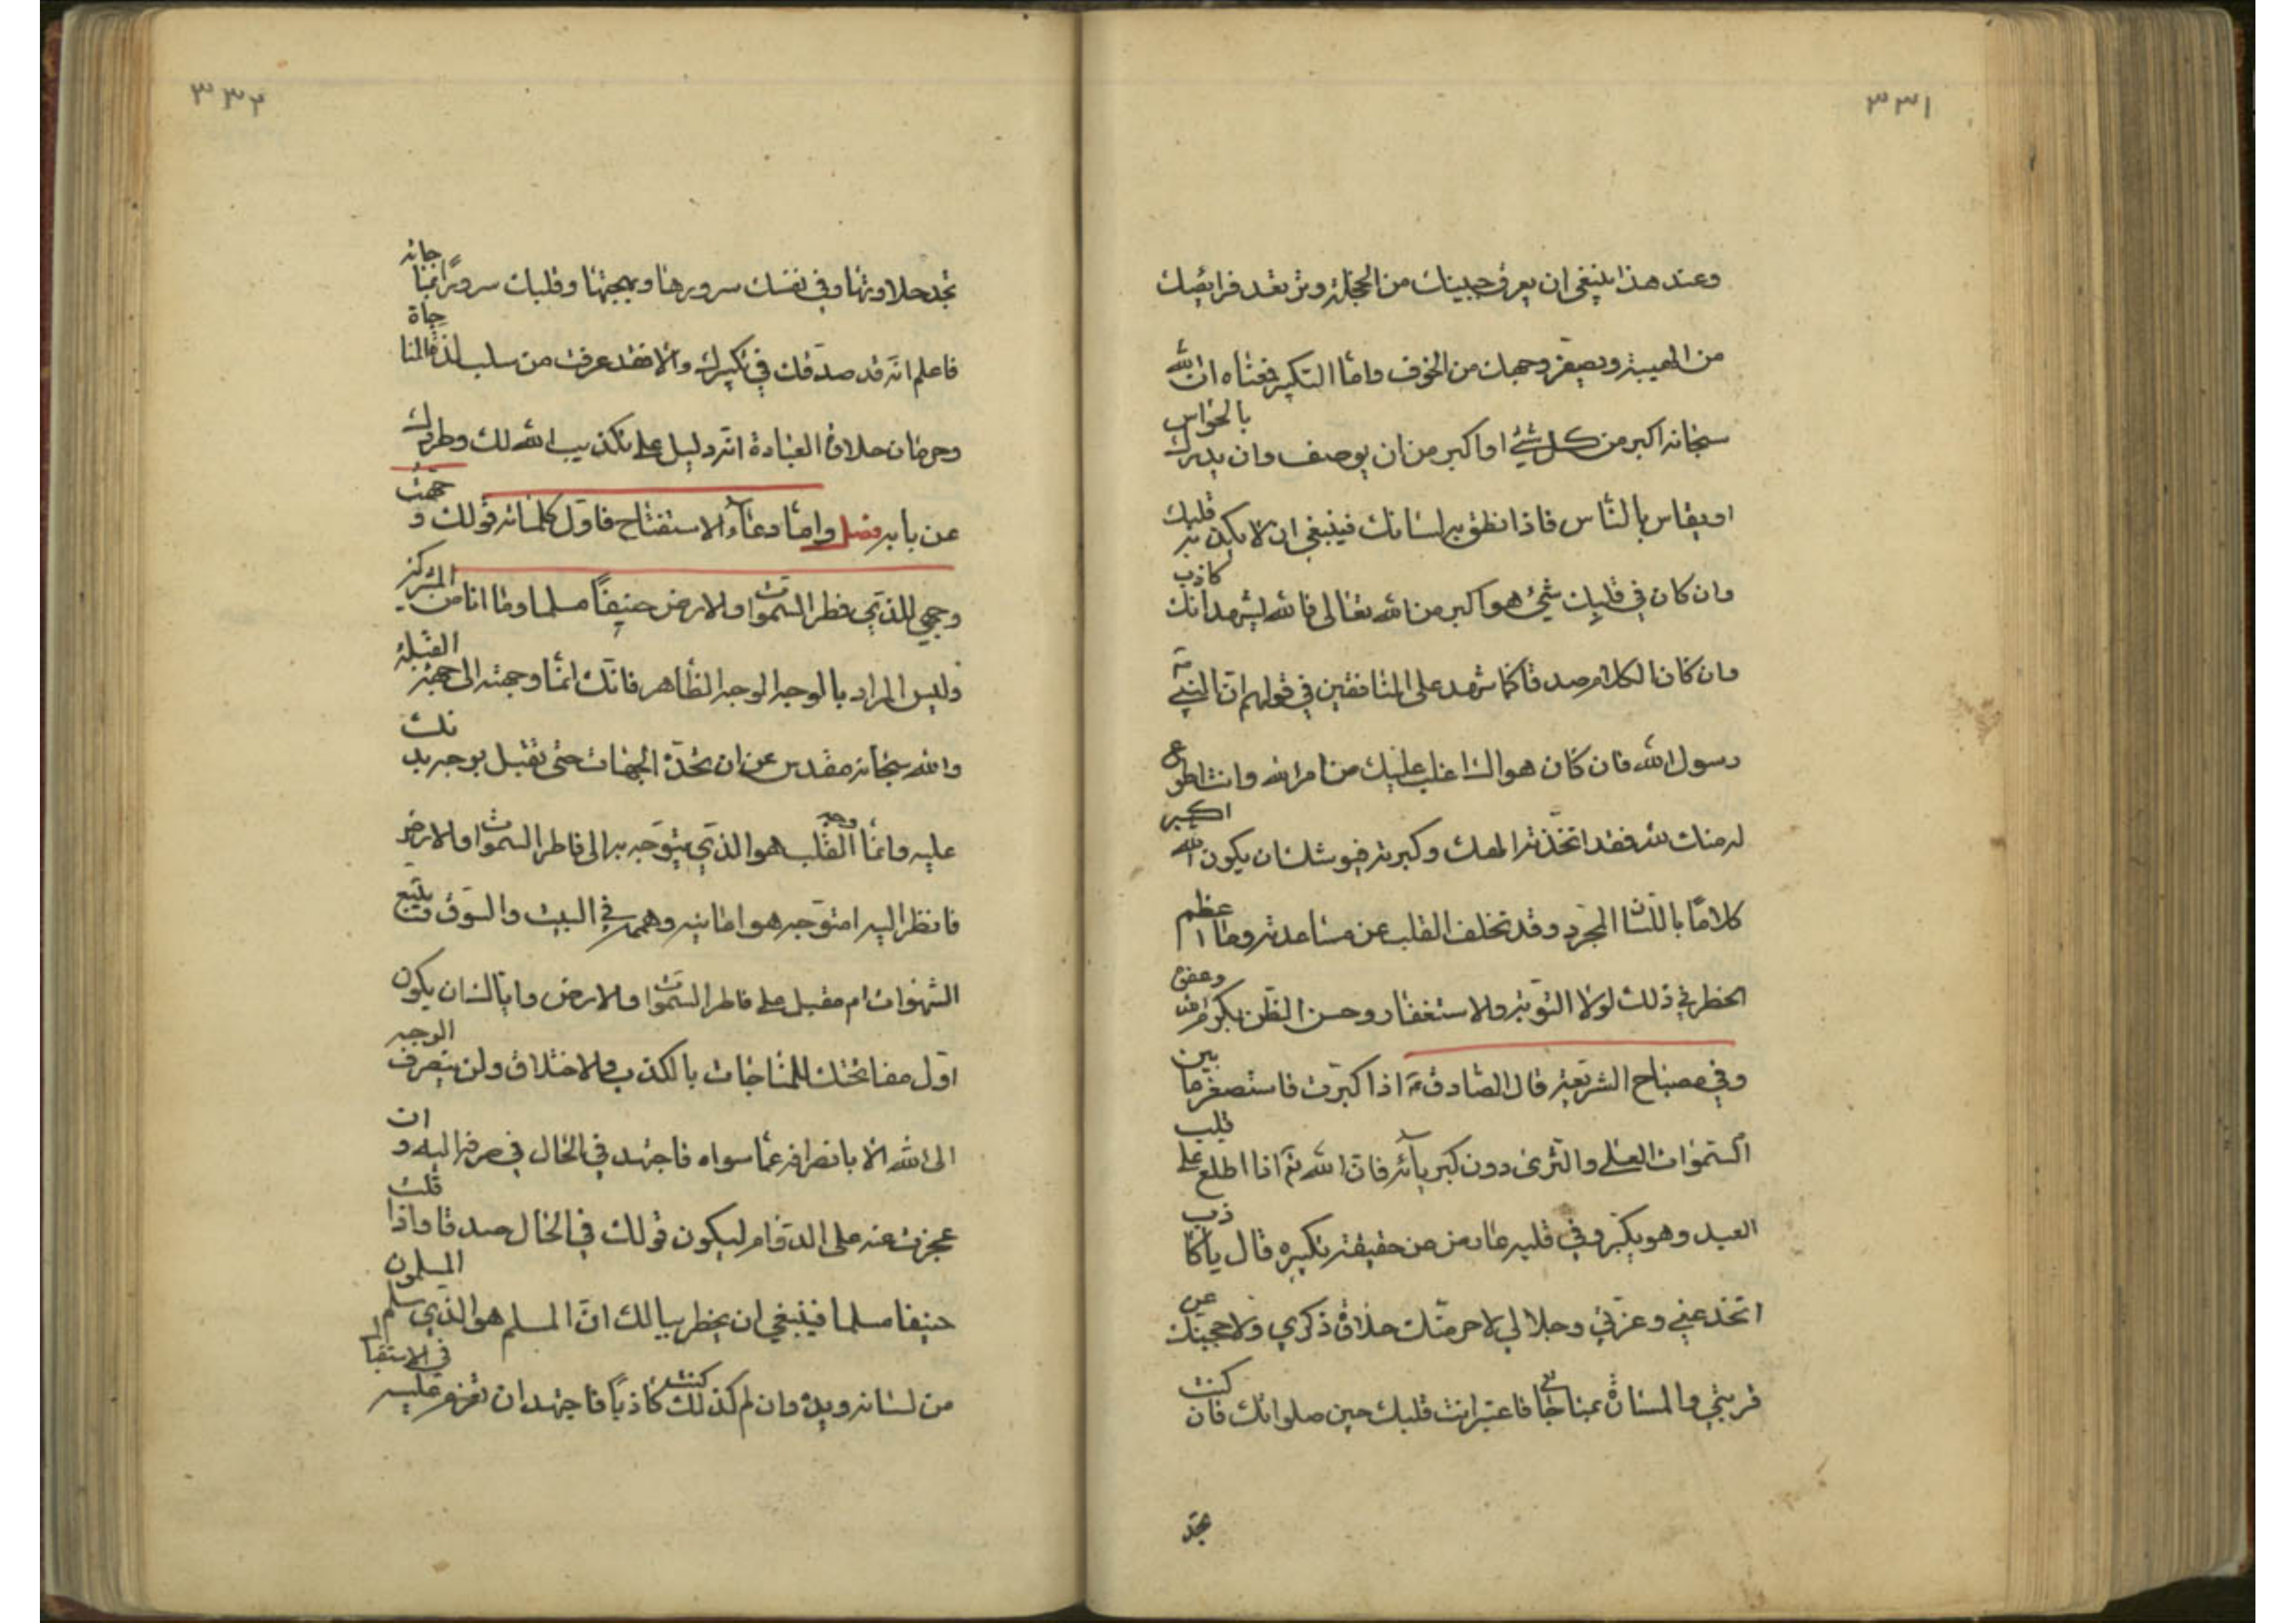 ٣٣١
وعند هذا ينبغي ان يعرق جبينك من الخجلة وترتعد فرايصك
من الهيبة ويصفر وجهك من الخوف واما التكبير فمعناه ان الله
سبحانه اكبر من كل شئ او اكبر من ان يوصف وان يدرك بالحواس
او يقاس بالناس فاذا نطق به لسانك فينبغي ان لا يكذبه قلبك
وان كان في قلبك شئ هو اكبر من الله تعالى فالله يشهد انك كاذب
وان كان الكلام صدقا كما شهد على المنافقين في قولهم ان النبي
رسول الله فان كان هواك اغلب عليك من امر الله وانت اطوع
له منك لله فقد اتخذته الهك وكبرته فيوشك ان يكون الله اكبر
كلاما باللسان المجرد وقد تخلف القلب عن مساعدته وما اعظم
الخطر في ذلك لولا التوبة والاستغفار وحسن الظن بكرم الله وعفوه
وفي مصباح الشريعة قال الصادق اذا كبرت فاستصغر ما بين
السموات العلى والثرى دون كبريائه فان الله تم اذا اطلع على قلب
العبد وهو يكبر وفي قلبه عارض من حقيقة تكبيره قال يا كاذب
اتخدعني وعزتي وجلالي لاحرمنك حلاوة ذكري ولاحجبنك عن
قربتي والمسارة بمناجاتي فاعتبر انت قلبك حين صلواتك فان كنت
تجد
٣٣٢
تجد حلاوتها وفي نفسك سرورها وبهجتها وقلبك سرورا بمناجاته
فاعلم انه قد صدقك في تكبيرك والا فقد عرفت من سلب لذة المناجاة
وحرمان حلاوة العبادة انه دليل على تكذيب الله لك وطردك
عن بابه فصل واما دعاء الاستفتاح فاول كلماته قولك وجهت
وجهي للذي فطر السموات والارض حنيفا مسلما وما انا من المشركين
وليس المراد بالوجه الوجه الظاهر فانك انما وجهته الى جهة القبلة
والله سبحانه مقدس عن ان تحده الجهات حتى تقبل بوجه بدنك
عليه وانما وجه القلب هو الذي يتوجه به الى فاطر السموات والارض
فانظر اليه امتوجه هو امانيه وهمه في البيت والسوق ويتبع
الشهوات ام مقبل على فاطر السموات والارض واياك ان يكون
اول مفاتحتك للمناجات بالكذب والاختلاق ولن ينصرف الوجه
الى الله الا بانصرافه عما سواه فاجتهد في الحال في صرفه اليه وان
عجزت عنه على الدوام ليكون قولك في الحال صدقا واذا قلت
حنيفا مسلما فينبغي ان يخطر ببالك ان المسلم هو الذي سلم المسلمون
من لسانه ويده وان لم كذلك كنت كاذبا فاجتهد ان تعزم عليه في الاستقبال